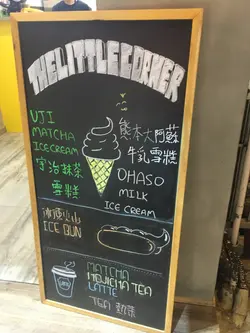 THE LITTLE CORNER
UJI
MATCHA
ICE CREAM
宇治抹茶
雪糕
熊本大阿蘇
牛乳雪糕
OHASO
MILK
ICE CREAM
ICE BUN
MATCHA
HOJICHA TEA
LATTE
TEA 熱茶